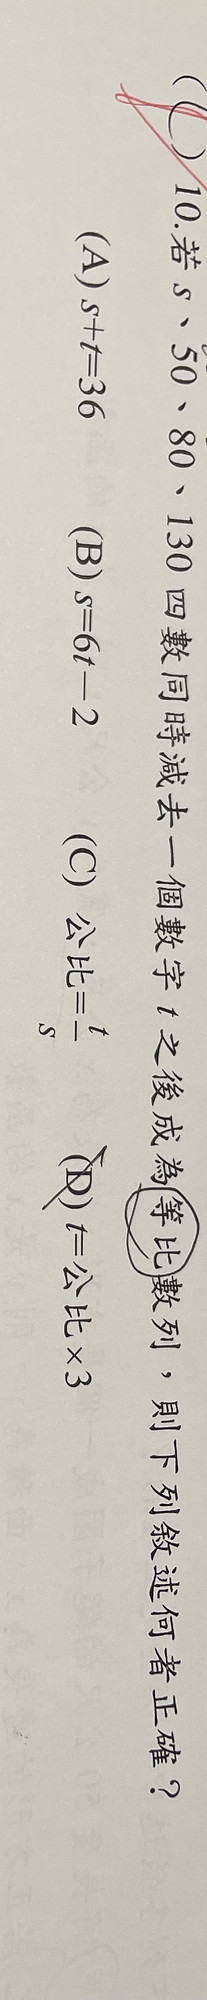 ( C ) 10.若 s、50、80、130 四數同時減去一個數字 t 之後成為等比數列，則下列敘述何者正確？
(A) s+t=36 (B) s=6t－2 (C) 公比=t/s (D) t=公比×3